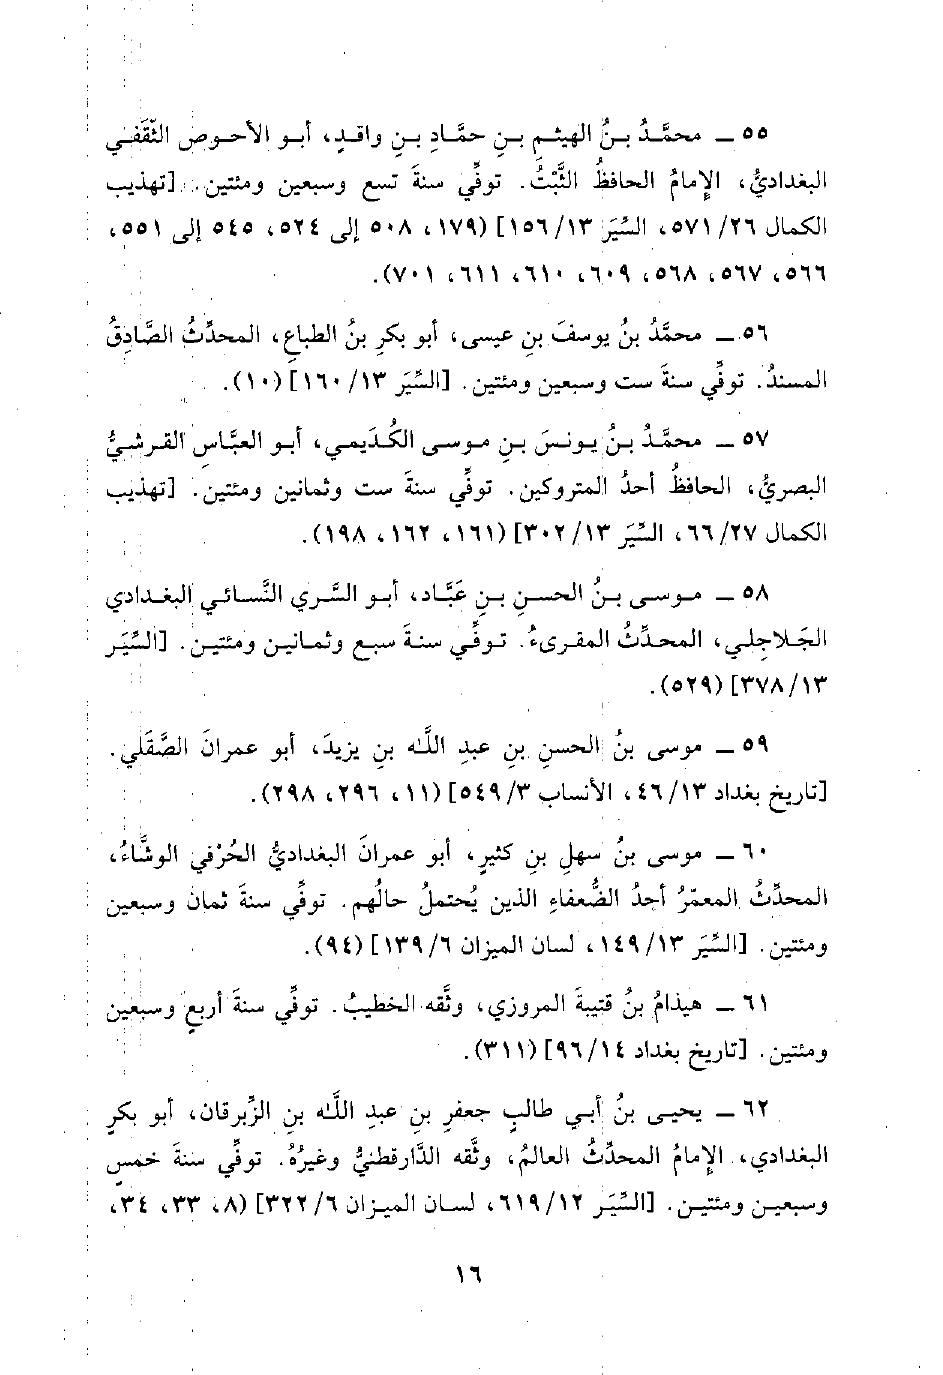 ٥٥ ـ محمَّدُ بـنُ الهيثـمِ بـنِ حمَّـادِ بـنِ واقـدٍ، أبـو الأحـوصِ الثَّقَفـي
البغداديُّ، الإمامُ الحافظُ الثَّبْتُ. توفِّي سنةَ تسع وسبعين ومئتين. [تهذيب
الكمال ٢٦/ ٥٧١، السِّيَر ١٣/ ١٥٦] (١٧٩، ٥٠٨ إلى ٥٢٤، ٥٤٥ إلى ٥٥١،
٥٦٦، ٥٦٧، ٥٦٨، ٦٠٩، ٦١٠، ٦١١، ٧٠١).
٥٦ ـ محمَّدُ بنُ يوسفَ بنِ عيسى، أبو بكرِ بنُ الطباعِ، المحدِّثُ الصَّادِقُ
المسندُ. توفِّي سنةَ ست وسبعين ومئتين. [السِّيَر ١٣/ ١٦٠] (١٠).
٥٧ ـ محمَّـدُ بـنُ يـونـسَ بـنِ مـوسى الكُـدَيمي، أبـو العبَّـاسِ القـرشيُّ
البصريُّ، الحافظُ أحدُ المتروكين. توفِّي سنةَ ست وثمانين ومئتين. [تهذيب
الكمال ٢٧/ ٦٦، السِّيَر ١٣/ ٣٠٢] (١٦١، ١٦٢، ١٩٨).
٥٨ ـ مـوسى بـنُ الحسـنِ بـنِ عَبَّـاد، أبـو السَّـري النَّسـائـي البغـدادي
الجَلاجِلي، المحدِّثُ المقرىءُ. تـوفِّـي سنـةَ سبـع وثمـانيـن ومئتيـن. [السِّيَـر
١٣/ ٣٧٨] (٥٢٩).
٥٩ ـ موسى بنُ الحسنِ بنِ عبدِ اللَّٰه بنِ يزيدَ، أبو عمرانَ الصَّقَلي.
[تاريخ بغداد ١٣/ ٤٦، الأنساب ٣/ ٥٤٩] (١١، ٢٩٦، ٢٩٨).
٦٠ ـ موسى بنُ سهلِ بنِ كثيرٍ، أبو عمرانَ البغداديُّ الحُرْفي الوشَّاءُ،
المحدِّثُ المعمّرُ أحدُ الضُّعفاءِ الذين يُحتملُ حالُهم. توفِّي سنةَ ثمان وسبعين
ومئتين. [السِّيَر ١٣/ ١٤٩، لسان الميزان ٦/ ١٣٩] (٩٤).
٦١ ـ هيذامُ بنُ قتيبةَ المروزي، وثَّقه الخطيبُ. توفِّي سنةَ أربعٍ وسبعين
ومئتين. [تاريخ بغداد ١٤/ ٩٦] (٣١١).
٦٢ ـ يحيى بنُ أبي طالبٍ جعفرِ بنِ عبدِ اللَّٰه بنِ الزِّبرقان، أبو بكرٍ
البغدادي، الإمامُ المحدِّثُ العالمُ، وثَّقه الدَّارقطنيُّ وغيرُهُ. توفِّي سنةَ خمسٍ
وسبعيـن ومئتيـن. [السِّيَـر ١٢/ ٦١٩، لسـان الميـزان ٦/ ٣٢٢] (٨، ٣٣، ٣٤،
١٦